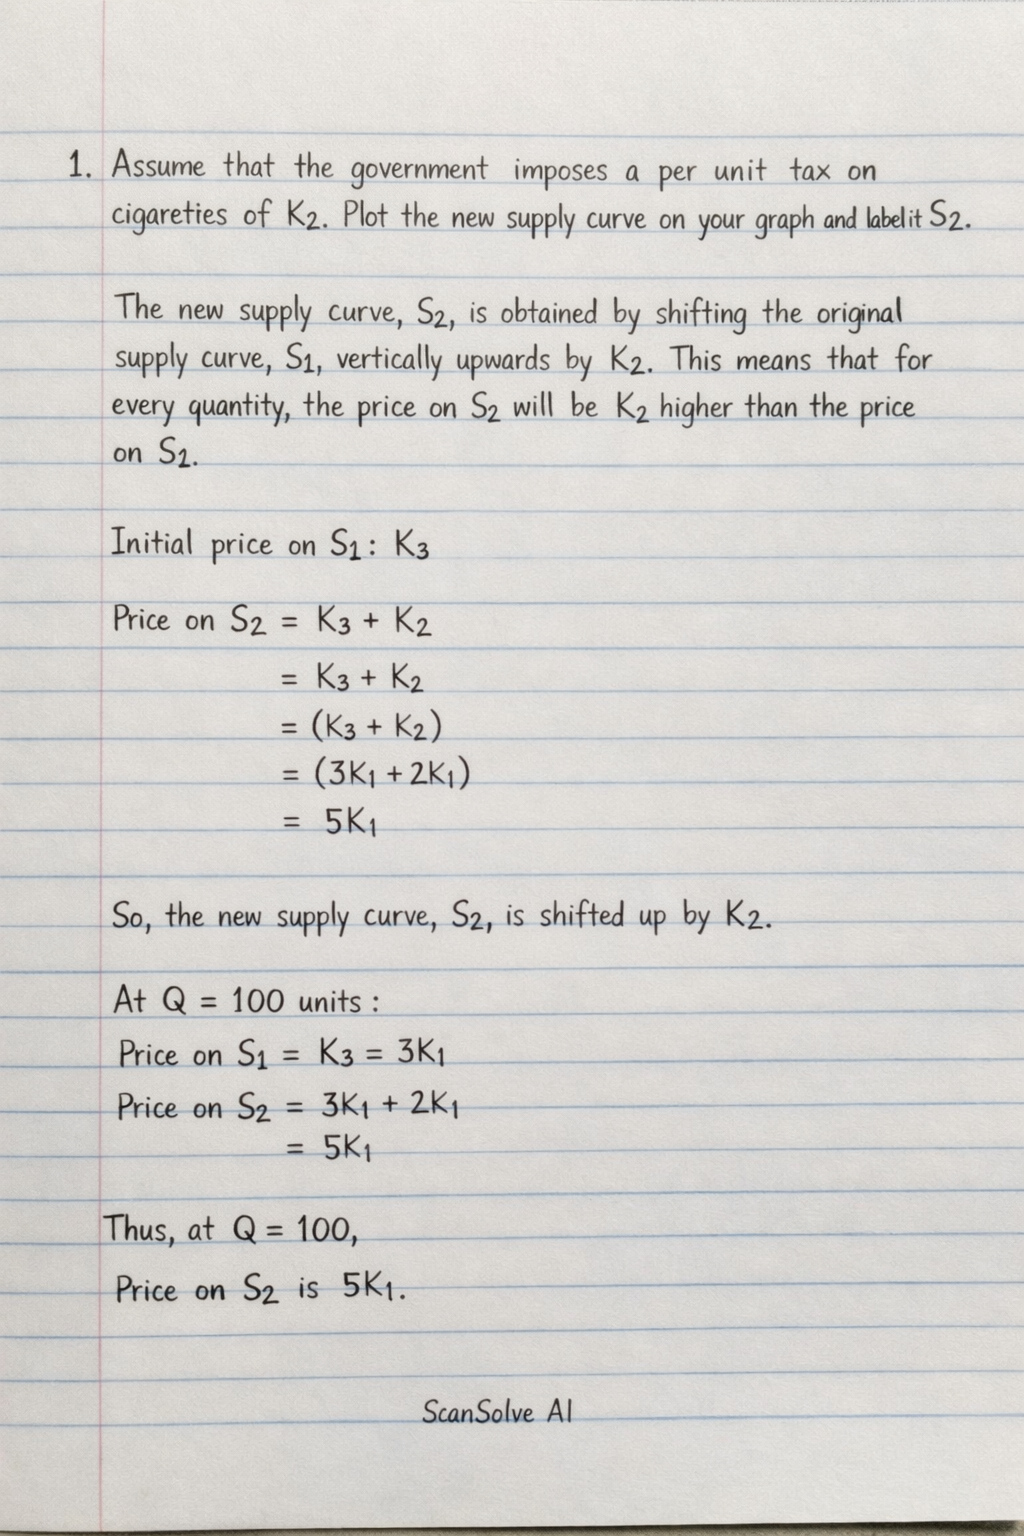 1. Assume that the government imposes a per unit tax on
cigareties of K₂. Plot the new supply curve on your graph and label it S₂.
The new supply curve, S₂, is obtained by shifting the original
supply curve, S₁, vertically upwards by K₂. This means that for
every quantity, the price on S₂ will be K₂ higher than the price
on S₁.
Initial price on S₁: K₃
Price on S₂ = K₃ + K₂
= K₃ + K₂
= (K₃ + K₂)
= (3K₁ + 2K₁)
= 5K₁
So, the new supply curve, S₂, is shifted up by K₂.
At Q = 100 units:
Price on S₁ = K₃ = 3K₁
Price on S₂ = 3K₁ + 2K₁
= 5K₁
Thus, at Q = 100,
Price on S₂ is 5K₁.
ScanSolve AI